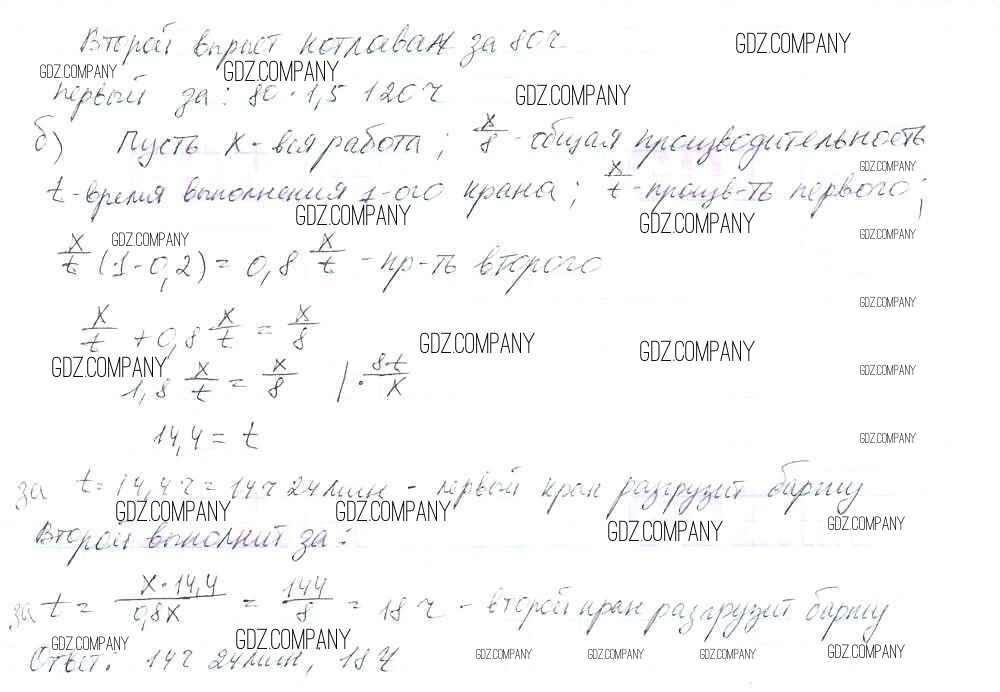 Второй выроет котлован за 80ч.
GDZ.COMPANY
GDZ.COMPANY GDZ.COMPANY
первый за: 80 · 1,5 120 ч
GDZ.COMPANY
б) Пусть x - вся работа; x/8 - общая производительность
GDZ.COMPANY
t - время выполнения 1-ого крана; x/t - произв-ть первого;
GDZ.COMPANY GDZ.COMPANY
GDZ.COMPANY GDZ.COMPANY
x/t (1 - 0,2) = 0,8 x/t - пр-ть второго
GDZ.COMPANY
x/t + 0,8 x/t = x/8
GDZ.COMPANY GDZ.COMPANY
GDZ.COMPANY GDZ.COMPANY
1,8 x/t = x/8 | · 8t/x
14,4 = t
GDZ.COMPANY
за t = 14,4 ч = 14 ч 24 мин - первый кран разгрузит баржу
GDZ.COMPANY GDZ.COMPANY GDZ.COMPANY GDZ.COMPANY
Второй выполнит за:
за t = x · 14,4/0,8x = 144/8 = 18 ч - второй кран разгрузит баржу
GDZ.COMPANY GDZ.COMPANY GDZ.COMPANY GDZ.COMPANY GDZ.COMPANY GDZ.COMPANY
Ответ: 14 ч 24 мин, 18 ч